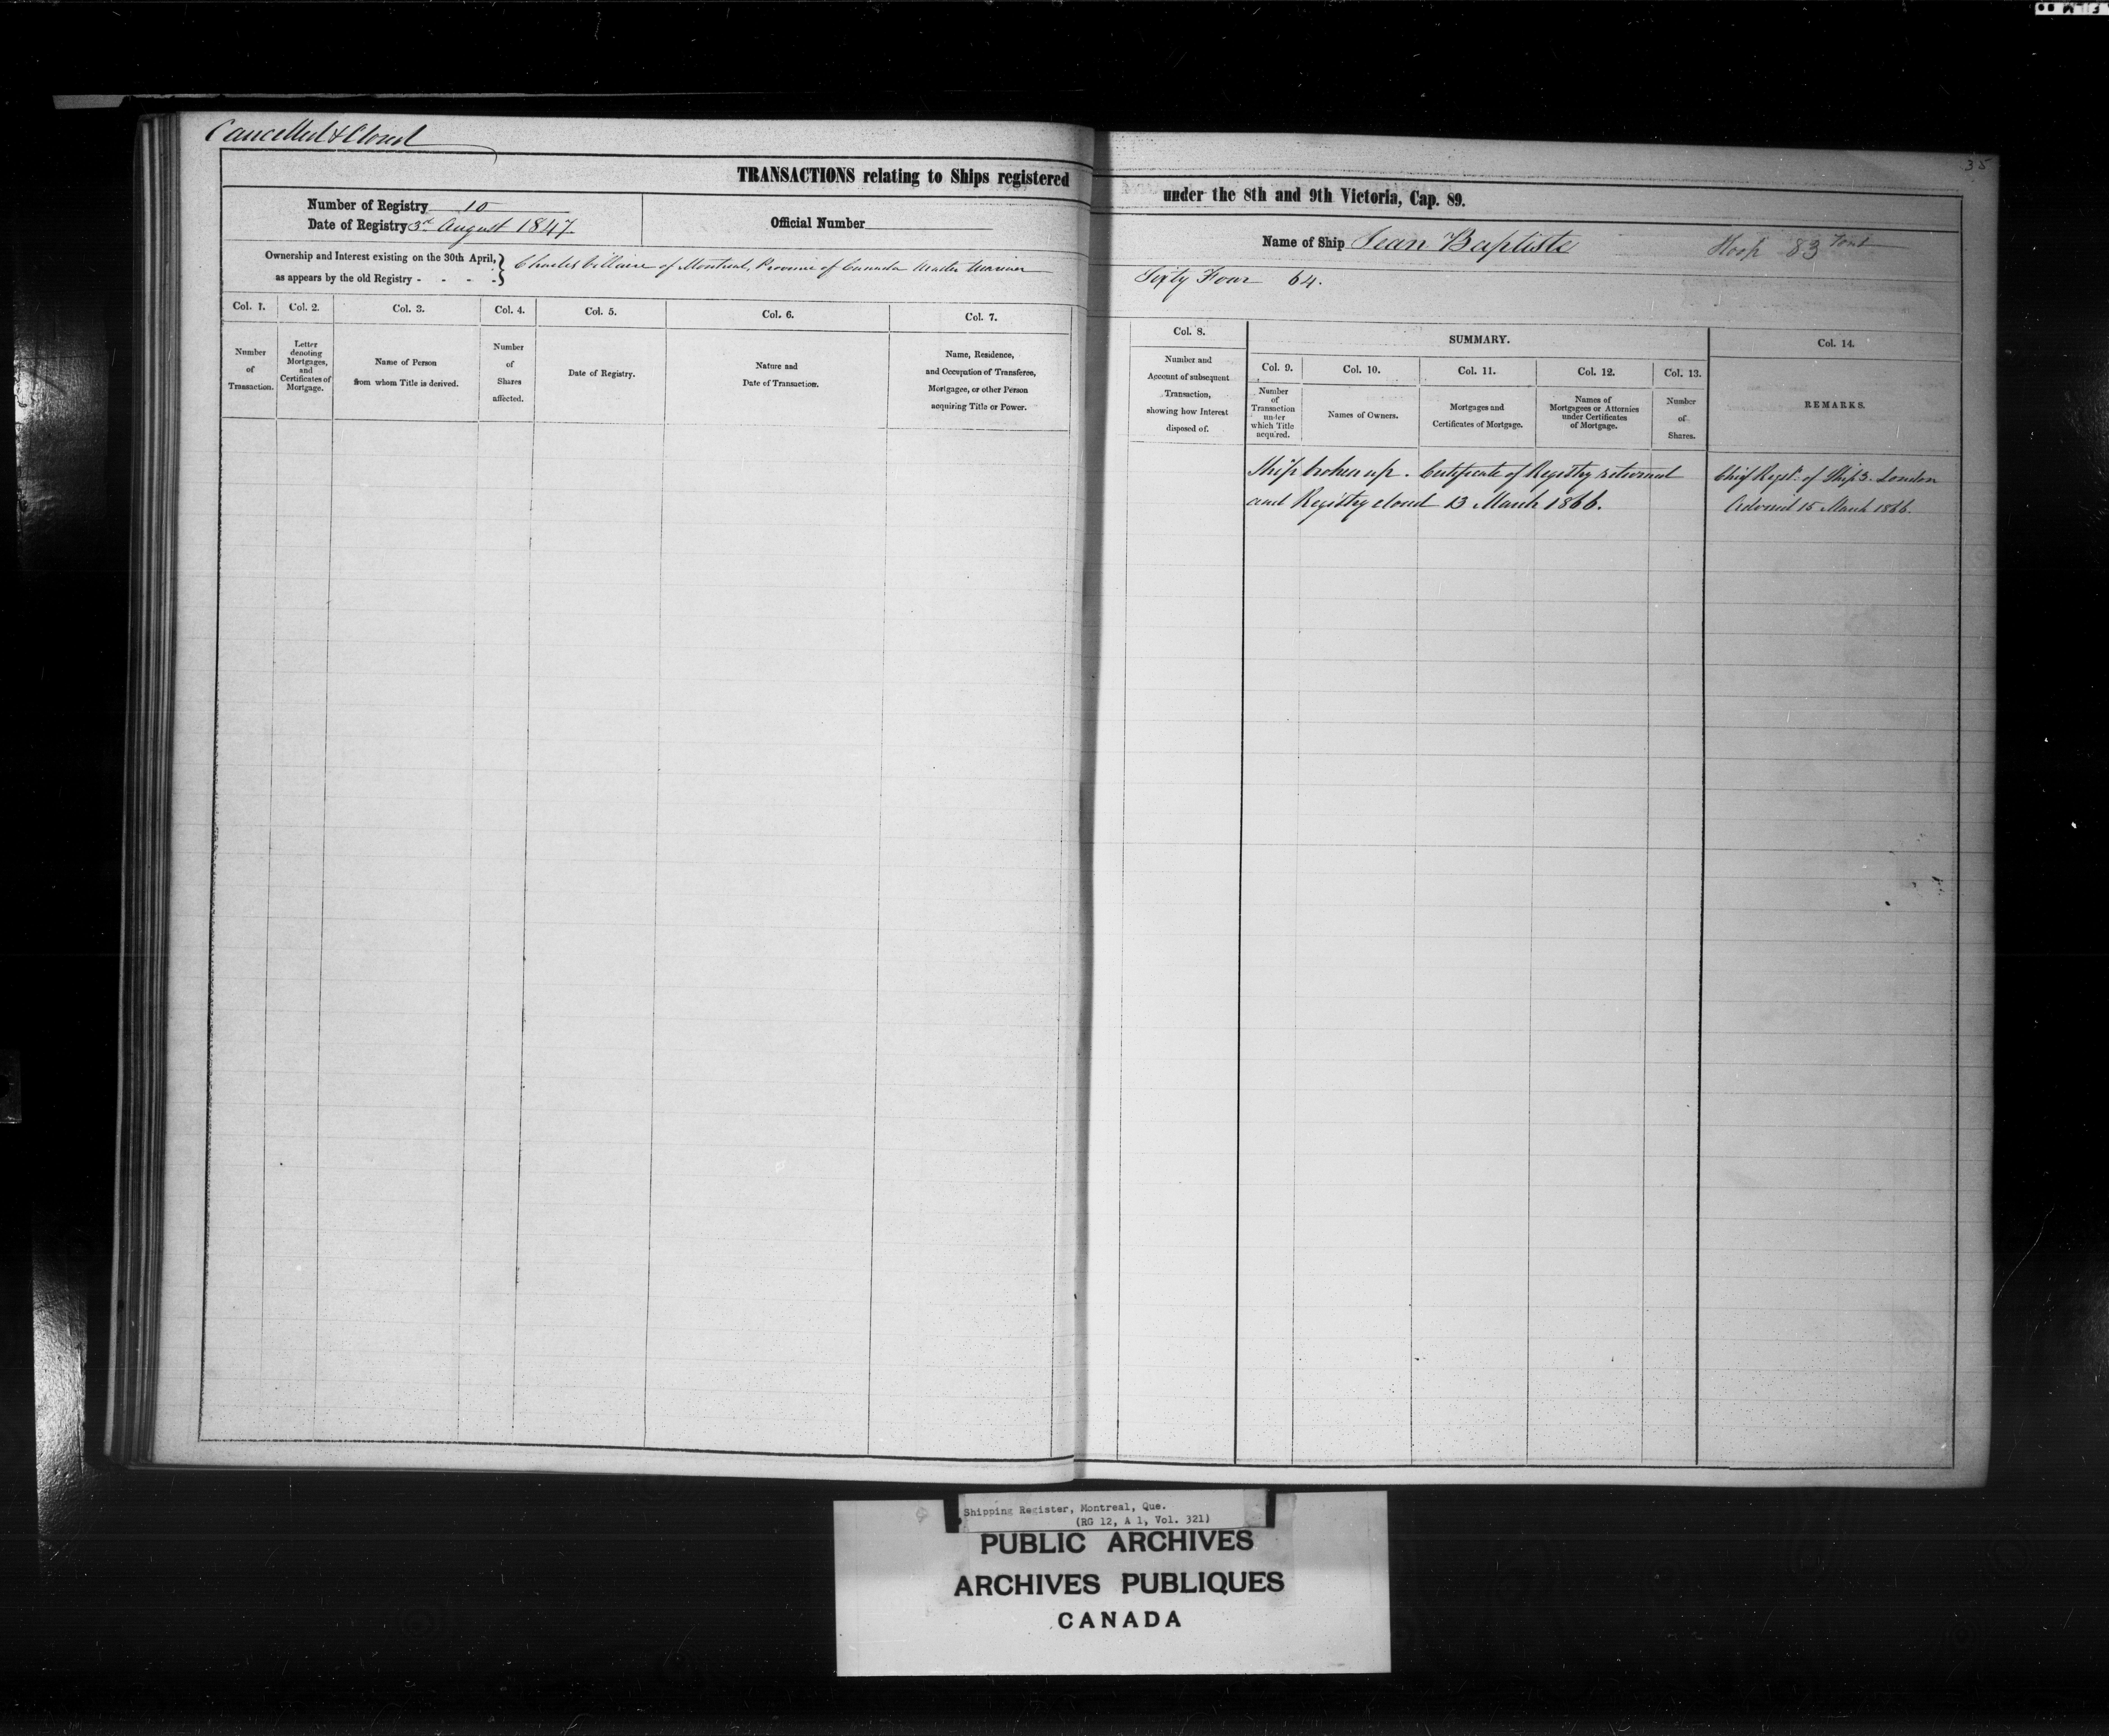 35
Cancelled & Closed
TRANSACTIONS relating to Ships registered under the 8th and 9th Victoria, Cap. 89.
Number of Registry 10
Date of Registry 3rd August 1847.
Official Number
Name of Ship Jean Baptiste Sloop 83 Tons
Ownership and Interest existing on the 30th April,
as appears by the old Registry - - - -
Charles Villaire of Montreal, Province of Canada Master Mariner Sixty Four 64.
Col. 1.
Number
of
Transaction.
Col. 2.
Letter
denoting
Mortgages,
and
Certificates of
Mortgage.
Col. 3.
Name of Person
from whom Title is derived.
Col. 4.
Number
of
Shares
affected.
Col. 5.
Date of Registry.
Col. 6.
Nature and
Date of Transaction.
Col. 7.
Name, Residence,
and Occupation of Transferee,
Mortgagee, or other Person
acquiring Title or Power.
Col. 8.
Number and
Account of subsequent
Transaction,
showing how Interest
disposed of.
SUMMARY.
Col. 9.
Number
of
Transaction
under
which Title
acquired.
Col. 10.
Names of Owners.
Col. 11.
Mortgages and
Certificates of Mortgage.
Col. 12.
Names of
Mortgagees or Attornies
under Certificates
of Mortgage.
Col. 13.
Number
of
Shares.
Col. 14.
REMARKS.
Ship broken up. Certificate of Registry returned
and Registry closed 13 March 1866.
Chief Regstr. of Ships London
Advised 15 March 1866.
Shipping Register, Montreal, Que.
(RG 12, A 1, Vol. 321)
PUBLIC ARCHIVES
ARCHIVES PUBLIQUES
CANADA